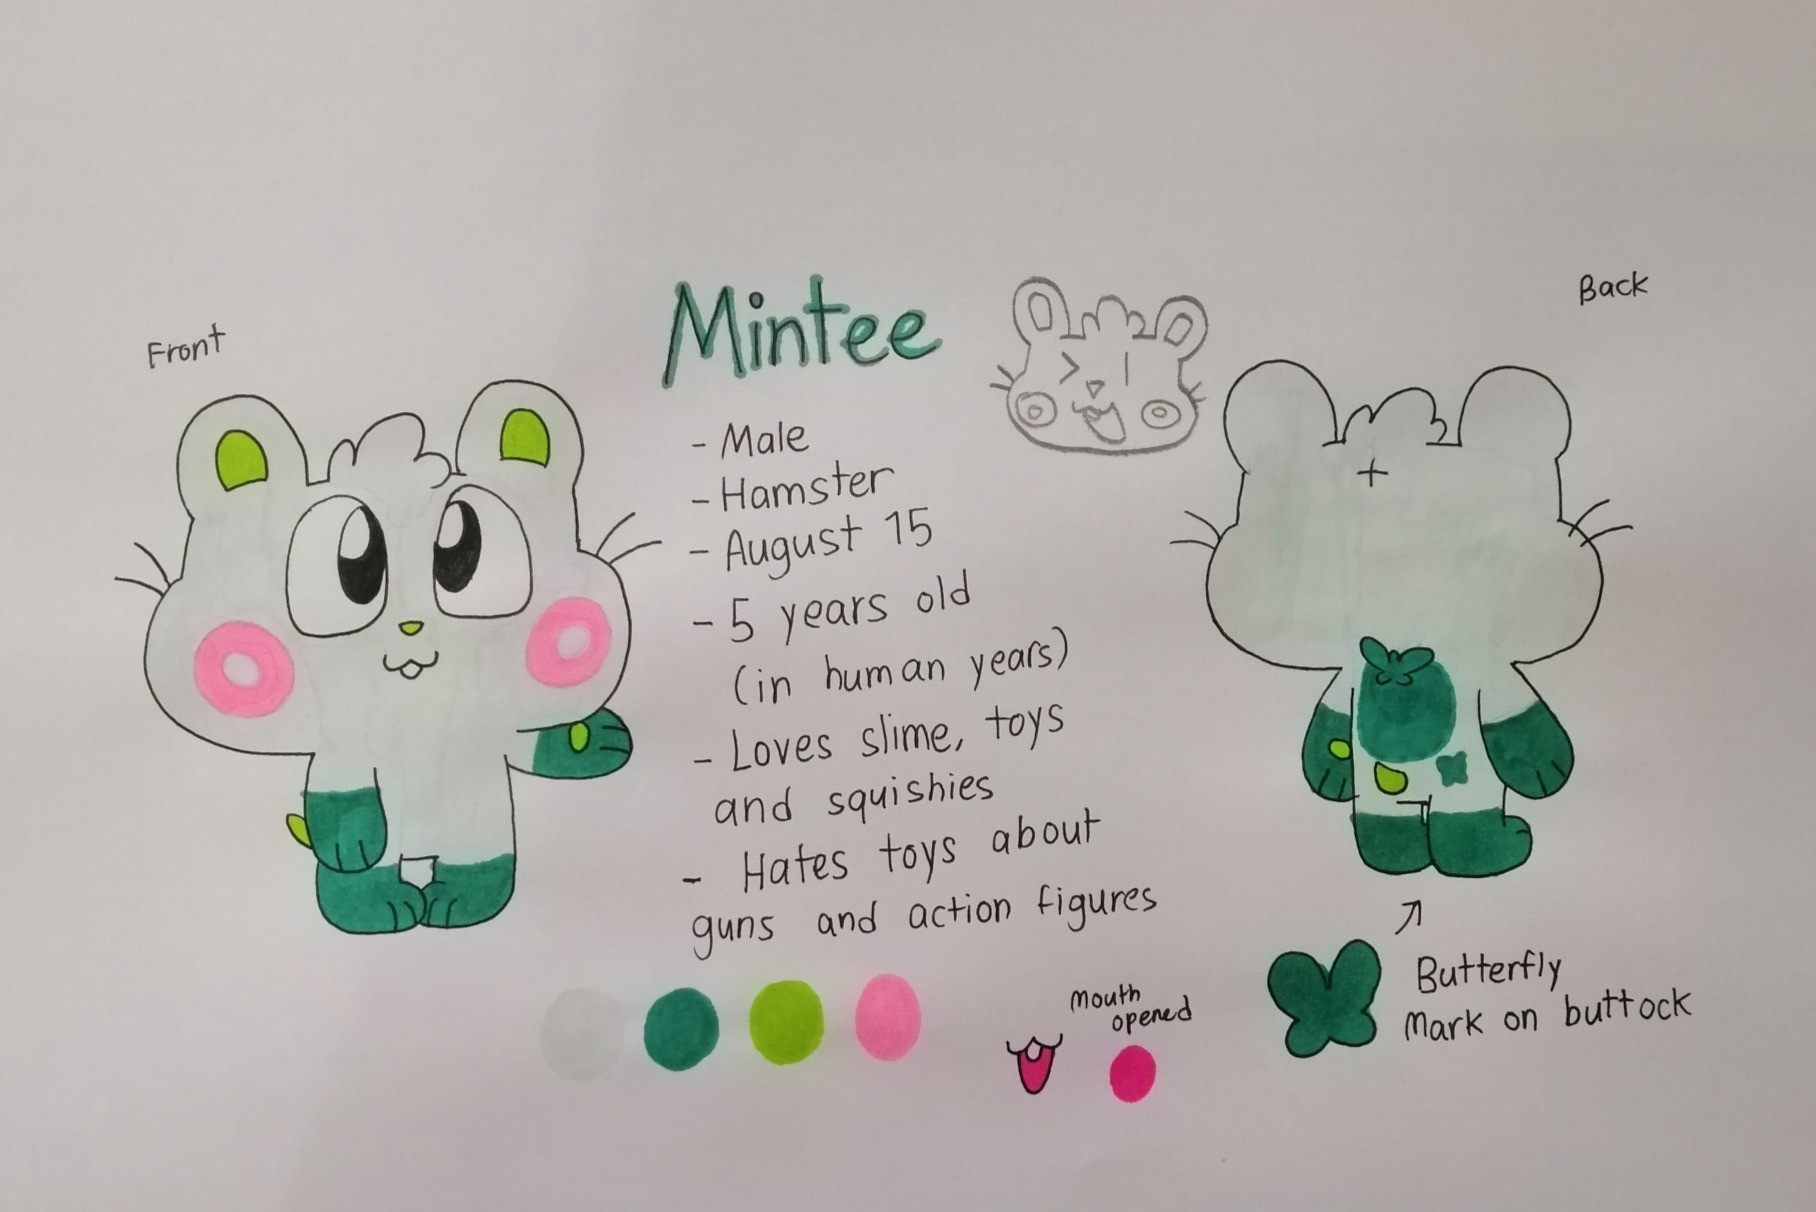 Front
Mintee
Back
- Male
- Hamster
- August 15
- 5 years old
(in human years)
- Loves slime, toys
and squishies
- Hates toys about
guns and action figures
Mouth
opened
Butterfly
Mark on buttock